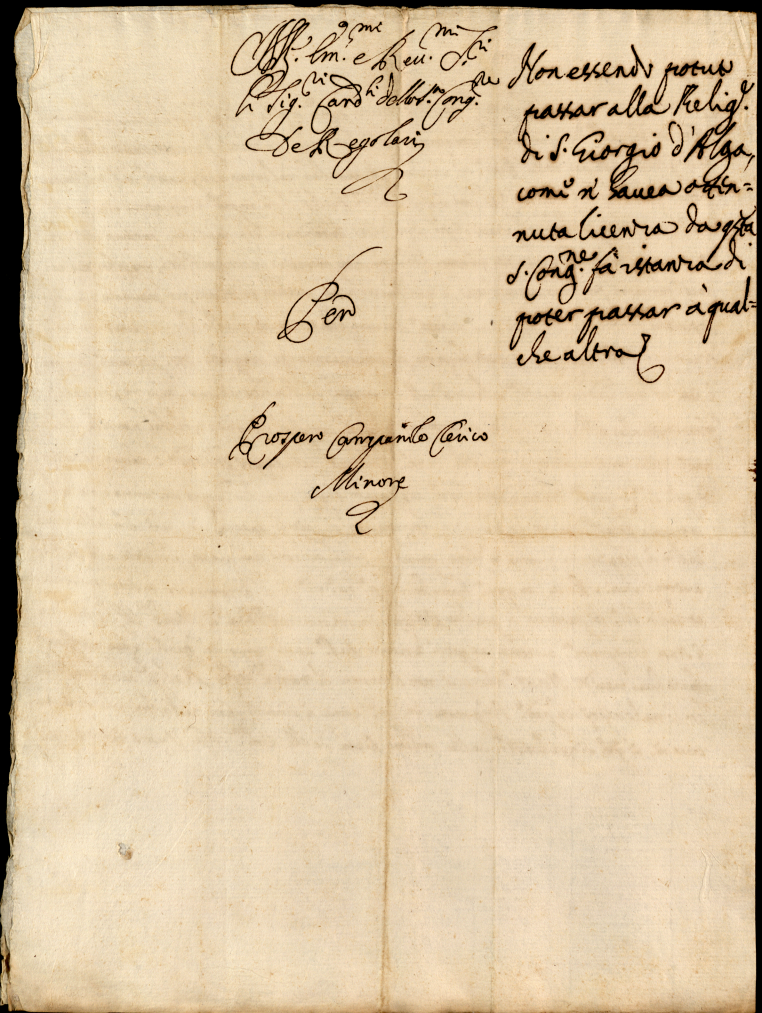 Em.mi e Rev.mi S.ri
li Sig.ri Card.li della S. Cong.ne
de Regolari
Per
Prospero Campanile Clerico
Minore
Non essendo potuto
passar alla Relig.e
di S. Giorgio d'Alga,
come n' havea otten=
nuta licenza da q.sta
S. Cong.ne fà istanza di
poter passar à qual=
che altra